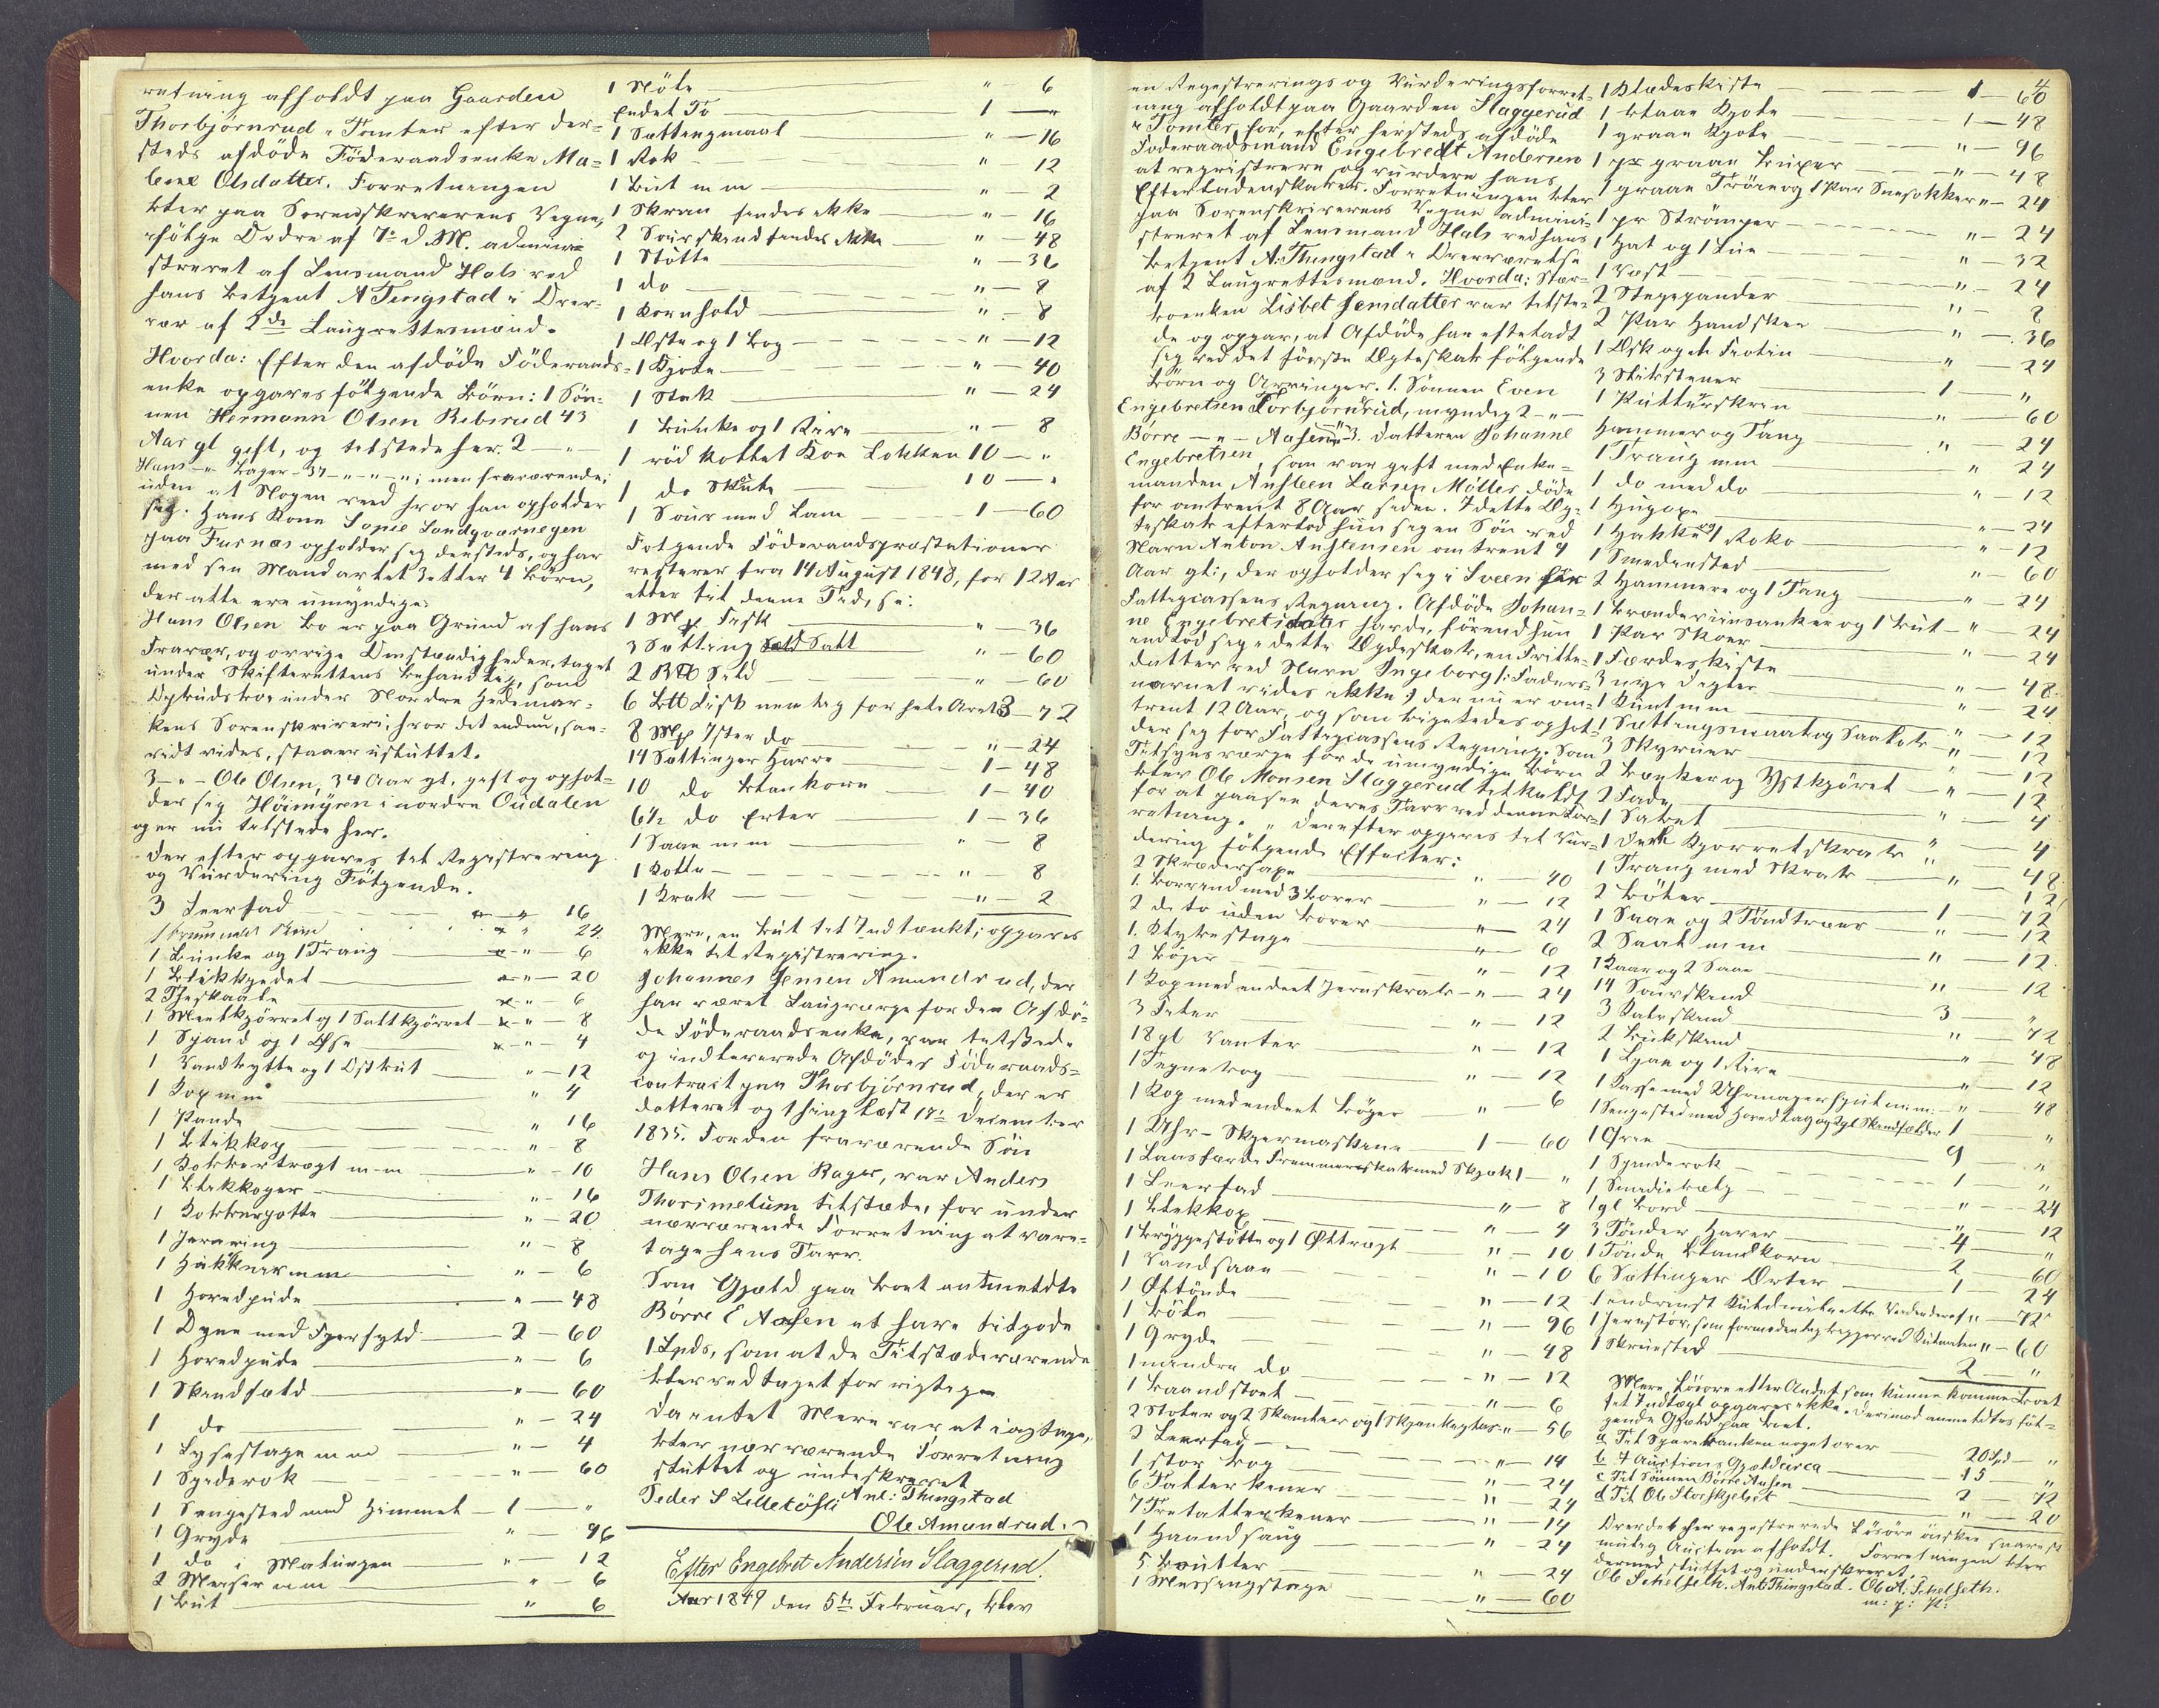 retning afholdt paa Gaarden
Thorbjörnrud i Tomter efter der-
steds afdöde Föderaadsenke Ma-
lene Olsdatter. Forretningen
blev paa Sorenskriverens Vegne,
ifölge Ordre af 7de d.M. admini-
streret af Lensmand Hals ved
hans betjent A Tingstad i Over-
vær af 2de Laugrettesmænd.
Hvorda: Efter den afdöde Föderaads-
enke opgaves fölgende börn: 1 Sön-
nen Hermann Olsen Ribsrud 43
Aar gl gift, og tilstede her. 2 — "
Hans -"- Bager - 37 -"-"-"; men fraværende;
uden at Nogen veed hvor han opholder
sig. Hans Kone Sopie Sandqværnegen
paa Furnæs opholder sig densteds, og har
med sin Mand avlet 3 eller 4 börn,
der alle ere umyndige.
Hans Olsen bo er paa Grund af hans
Fravær, og övrige Omstændigheder, taget
under Skifterettens behandling, som
Opbudsboe under Nordre Hedemar-
kens Sorenskriveri, hvor det endnu, saa-
vidt vides, staaer usluttet.
3 -"- Ole Olsen, 34 Aar gl. gift og ophol-
der sig Höimyren i nordre Oudalen
og er nu tilstede her.
Derefter opgaves til Registrering
og Vurdering Fölgende.
3 Leerfad — " 16
" 24
1 bunke og 1 Traug — " — 6
1 blikkjedel — " — 20
2 Theskaale — " — 6
1 Meelkjörrel og 1 Saltkjörrel — " — 8
1 Spand og 1 Öse — " — 4
1 Vandbytte og 1 Ostbut — " — 12
1 Kop m m — " 4
1 Pande — " 16
1 blikkop — " 8
1 Kobbertragt m-m — " - 10
1 blikkoger — " - 16
1 Kobbergotte — " - 20
1 Jernring — " - 8
1 Hakkniv m m — " - 6
1 Hovedpude — " — 48
1 Dyne med Fjerfyld — 2 — 60
1 Hovedpude — " — 6
1 Skindfæld — " — 60
1 do — " — 24
1 Lysestage m m — " — 4
1 Spiderok — " — 60
1 Sengested med Himmel — 1 — "
1 Gryde — " — 96
1 do i Malingen — " — 12
2 Meiser m m — " — 6
1 but — " 6
1 Nöte — " — 6
Endel To — 1 — "
1 Sættengmaal — " — 16
1 Rok — " 12
1 but m m — " — 2
1 Skrin findes ikke — " — 16
2 Sourskind findes ikke — " 48
1 Stötte — " — 36
1 do — " — 8
1 Kornhold — " — 8
1 Æske og 1 bog — " — 12
1 Kjole — " — 40
1 Stak — " — 24
1 bunke og 1 Rive — " — 8
1 röd kollet Koe Lokken 10 — "
1 do Skute — 10 — "
1 Sour med Lam — 1 — 60
Fölgende Föderaadspræstationer
resterer fra 14 August 1848, for 12 Aar
eller til denne Tid, sc:
1 Mk. Fisk — " — 36
3 Sætting Salt — " — 60
2 Sild — " — 60
6 Fisk nemlig for hele Aaret 3 — 72
8 Mk Ister do — " — 24
14 Sættinger Havre — 1 — 48
10 do blankorn — 1 — 40
6½ do Erter — 1 — 36
1 Saae m m — " — 8
1 Kolle — " 8
1 Krak — " — 2
Mere, en but til Indtænkt; opgaves
ikke til Registrering.
Johannes Jensen Amundrud, der
har været Laugværge for den Afdö-
de Föderaadsenke, var tilstede
og indleverede Afdödes Föderaads-
contract paa Thorbjörnrud, der er
dateret og thinglæst 17de December
1835. For den fraværende Sön
Hans Olsen Bager, var Anders
Thorsmelum tilstæde, for under
nærværende Forretning at vare-
tage hans Tarv.
Som Gjæld paa boet anmeldte
Börre E Aasen at have tilgode
1 Spds, som af de Tilstædeværende
blev vedtaget for rigtig.
Da intet Mere var at iagttage,
blev nærværende Forretning
sluttet og underskrevet
Peder S Lilletösli Ant: Thingstad
Ole Amundrud.
Efter Engebret Andersen Slaggerud.
Aar 1849 den 5te Februar, blev
en Registrerings og Vurderingsforret-
ning afholdt paa Gaarden Slaggerud
i Tomter, for, efter hersteds afdöde
Föderaadsmand Engebredt Andersen
at registrere og vurdere hans
Efterladenskaber. Forretningen blev
paa Sorenskriverens Vegne admini-
streret af Lensmand Hals ved hans
betjent A: Thingstad i Overværelse
af 2 Laugrettesmænd. Hvorda: Stær-
boenken Lisbet Jensdatter var tilste-
de og opgav, at Afdöde har efterladt
sig ved det förste Ægteskab fölgende
börn og Arvinger. 1. Sönnen Even
Engebretsen Torbjörnrud, myndig 2 -"-
Börre -"- Aasen -"- 3. Datteren Johanne
Engebretsen, som var gift med Enke-
manden Anfsteen Larsen Möller döde
for omtrent 8 Aar siden. I dette Æg-
teskab efterlod hun sig en Sön ved
Navn Anton Anstensen omtrent 9
Aar gl:, der opholder sig i Sveen for
Fattigcassens Regning. Afdöde Johan-
ne Engebretsdatter havde, förend hun
indlod sig i dette Ægteskab, en Frille-
datter ved Navn Ingeborg /: Faders-
navnet vides ikke :/ der nu er om-
trent 12 Aar, og som ligeledes ophol-
der sig for Fattigcassens Regning. Som
Tilsynsværge for de umyndige börn
blev Ole Monsen Slaggerud tilkaldt
for at paasee deres Tarv ved denne For-
retning. " Derefter opgaves til Vur-
dering fölgende Effecter:
2 Skrædersaxe — " — 40
1. borvind med 3 borer — " — 12
2 dito uden borer — " 24
1. Klykestage — " 6
2 böger — " — 12
1 Kop med andet Jernskrab — " — 24
3 Feler — " 12
18 gl Vanter — " — 12
1 Tegnebog — " — 12
1 Kop med endeel böger — " — 6
1 Uhr- Skjermaskine — 1 — 60
1 Laasfærdi Fremmerskab med Skjæk 1 — "
1 Leerfad — " — 8
1 blikkop — " — 4
1 bryggestötte og 1 Öltragt — " — 10
1 Vandsaae — " — 10
1 Öltönde — " — 12
1 bölle — " — 96
1 Gryde — " — 48
1 mindre do — " — 12
1 baandstoel — " — 6
2 Stoler og 2 Skamler og 1 Skjenkeglas " — 56
2 Leerfad — " — 14
1 stor bog — " — 24
6 Tallerkener — " 24
7 Trætallerkener — " — 14
1 Haandsaug — " — 24
5 boutter — " — 24
1 Messingstage — " — 60
1 Klædeskiste — 1 — 60
1 blaae Kjole — 1 — 48
1 graae Kjole — " — 96
1 pr graae buxer — " — 48
1 graae Tröie og 1 Par Sneesokker " — 24
1 pr Strömper — " — 24
1 Hat og 1 Lue — " — 32
1 Væst — " — 24
2 Stegepander — " 8
2 Par Handsker — " — 36
1 Æsk og et Fiolin — " 24
3 Slibstener — 1 "
1 Pulterskrin — " — 60
Hammer og Tang — " 24
1 Traug m m — " 24
1 do med do — " 12
1 Hugöxe — " — 24
1 Hakke og 1 Roko — " — 12
1 Smedinsted — " — 60
2 Hammere og 1 Tang — " — 24
1 brændeviinsanker og 1 but — " 24
1 Par Skoer — " — 24
1 Færdeskiste — " — 48
3 nye Segler — " — 24
1 Kunt m m — " — 12
1 Sættingsmaal og Saalab — " — 12
3 Skyruer — " — 12
2 bænker og Ystkjörel — " — 12
2 Fade — " — 4
1 Salsel — " 4
1 Deel Kjörrelskrab — " 48
1 Traug med Skrab — " 12
2 böter — 1 72
1 Saae og 2 Töndtræer — " — 12
2 Saald m m — " — 12
1 Kaar og 2 Saae — " 12
14 Sourskind — 3 "
3 Kalveskind — " 72
2 bukskind — " — 48
1 Ljaae og 1 Rive — " — 12
1 Kasse med Uhrmagerspul m:m: — " — 48
1 Sengested med Hovedlag og 2 gl Skindfælder 1 "
1 Ovn — 9 "
1 Spinderok — 1 — "
1 Smediebælg — " — 24
1 gl bord — " 12
3 Tönder Havre — 4 — "
1 Tönde blandkorn — 2 — 60
6 Sættinger Erter — 1 — 24
" — 72
" — 60
1 Skruested — 2 — "
Mere Lösöre eller Andet som kunne komme boet
til Indtægt opgaves ikke. Derimod anmeldtes föl-
gende Gjæld paa boet.
a Til Sparebanken noget over — 20 Spd — "
b I Auctions Gjæld circa — 15 "
c Til Sönnen Börre Aasen — 2 — 72
d Til Ole Storskjelset — " — 20
Over det her registrerede Lösöre önskes snarest
mulig Auction afholdt. Forretningen blev
dermed sluttet og underskrevet.
Ole Schelseth. Ant: Thingstad. Ole A: Schelseth.
m: p: P: